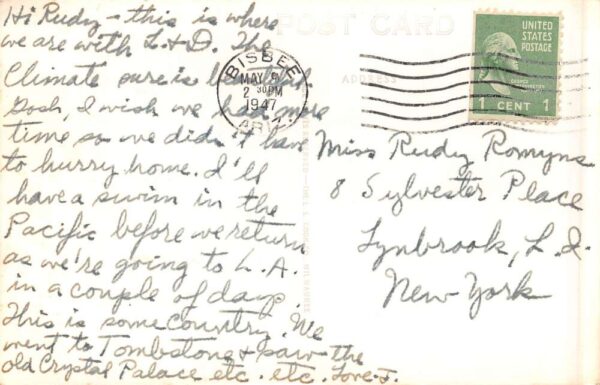 Hi Rudy - this is where
we are with L+D. The
Climate sure is
Gosh, I wish we had more
time so we didn't have
to hurry home. I'll
have a swim in the
Pacific before we return
as we're going to L.A.
in a couple of days.
This is some country. We
went to Tombstone + saw the
old Crystal Palace etc. etc. Love-J.
POST CARD
ADDRESS
BISBEE
MAY
2 30 PM
1947
ARIZ.
UNITED
STATES
POSTAGE
1 CENT 1
Miss Rudy Romyns
8 Sylvester Place
Lynbrook, L.I.
New York